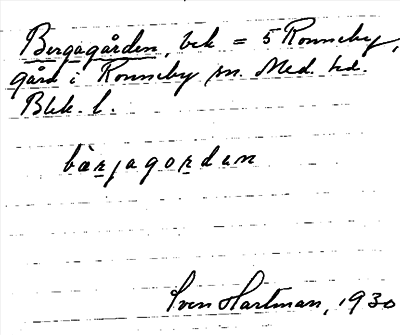 Bergagården, bek = 5 Ronneby,
gård i Ronneby sn. Med. hd.
Blek. l.
bærjagordən
Sven Hartman, 1930